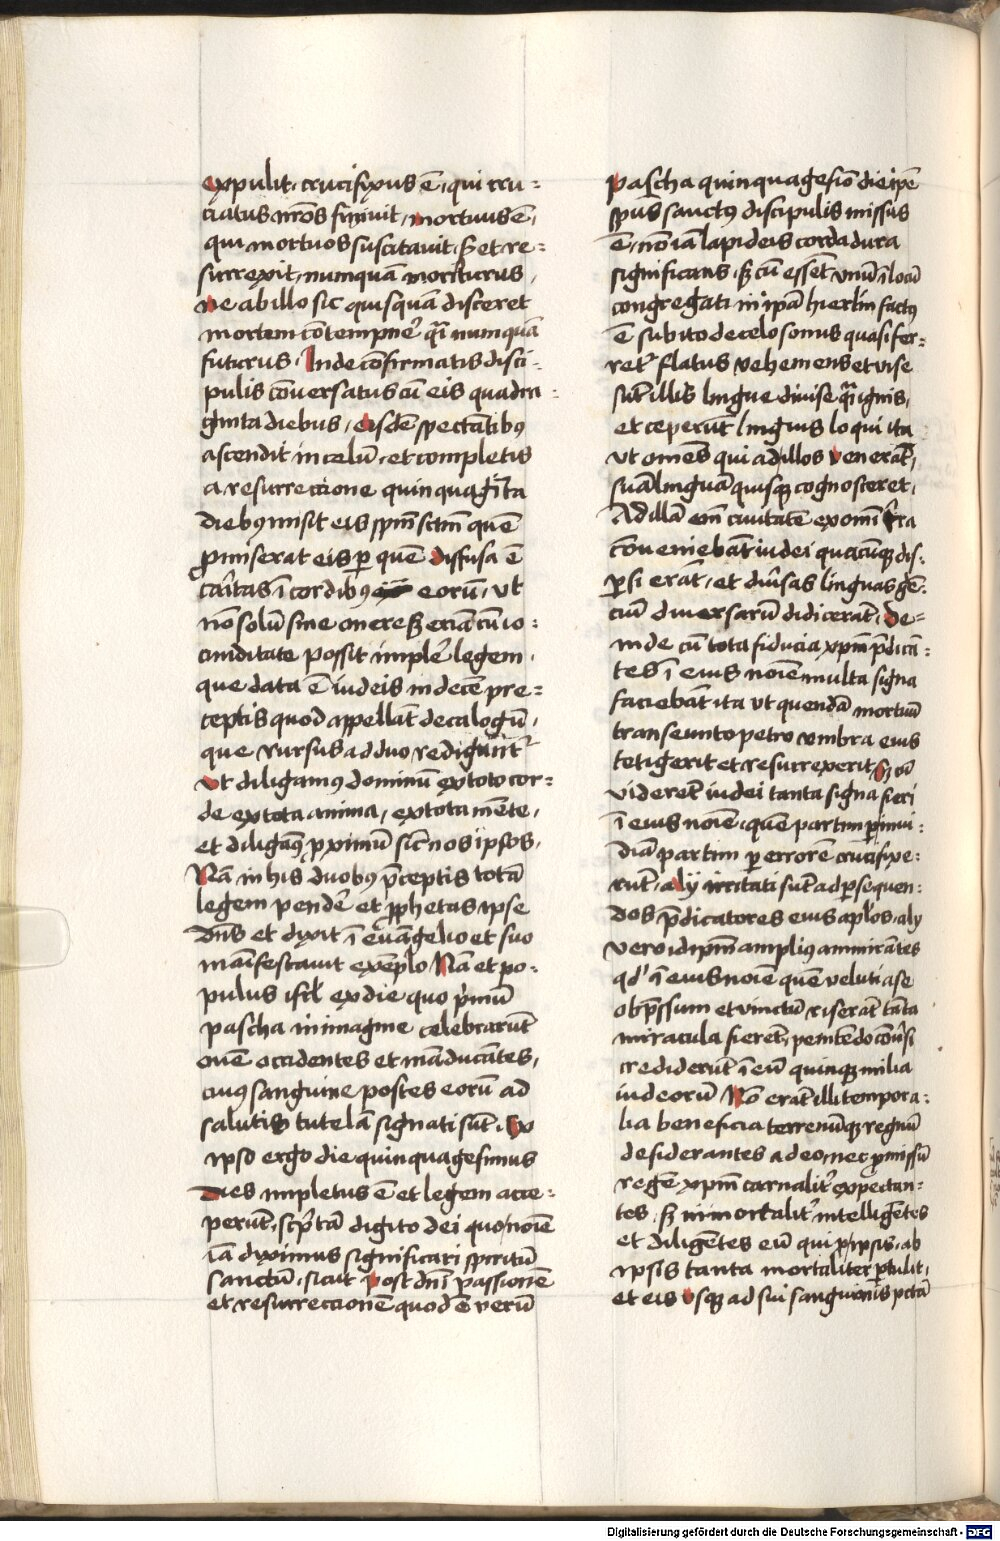 expulit, crucifixus ē, qui cru-
ciatus nr̄os finiuit, mortuus ē,
qui mortuos suscitauit, sꝫ et re-
surrexit, numquā moriturus,
ne ab illo sic quisquā disceret
mortem cōtempner̄ q̄si numquā
futurus. Inde cōfirmatis disci-
pulis cōuersatus cū eis quadra-
ginta diebus, eisdē spectātibꝰ
ascendit in celū, et completis
a resurreccione quinquagīta
diebꝰ misit eis spm̄ sctm̄ quē
ꝓmiserat eis ꝑ quē diffusa ē
caritas ī cordibꝰ eorū, vt
nō solū sine onere sꝫ eciā cū io-
cunditate possit impler̄ legem,
que data ē iudeis in decē pre-
ceptis quod appellāt decalogū,
que rursus ad duo rediguntr̄
vt diligamꝰ dominū ex toto cor-
de ex tota anima, ex tota mēte,
et diligamꝰ ꝓximū sic̄ nos ipsos,
Nā in his duobꝰ p̄ceptis totā
legem pender̄ et ꝓphetas ipse
dn̄s et dixit ī euāgelio et suo
manifestauit exēplo Nā et po-
pulus isrl̄ ex die quo p̄mū
pascha in imagine celebrarūt
ouē occidentes et māducātes,
cuius sanguine postes eorū ad
salutis tutelā signati sūt, Ex
ipso ergo die quinquagesimus
dies impletus ē et legem acce-
perūt, scp̄tā digito dei quo noīe
iā diximus significari spiritū
sanctū, sicut post dn̄i passionē
et resurreccionē quod ē verū
pascha quinquagesīo die ip̄e
sp̄us sanctꝰ discipulis missus
ē, nō iā lapideis corda dura
significans, sꝫ cū essēt vnū ī locū
congregati in ip̄a hierl̄m factꝰ
ē subito de celo sonus quasi fer-
retr̄ flatus vehemens et vise
sūt illis lingue diuise q̄si ignis,
et ceperūt linguis loqui ita
vt om̄es qui ad illos venerāt,
suā linguā quisqꝫ cognosceret,
Ad illā em̄ ciuitatē ex omī tr̄a
cōueniebāt iudei quacūqꝫ dis-
ꝑsi erāt, et diu̓sas linguas gē-
ciū diuersarū didicerāt, De-
inde cū tota fiducia xp̄m p̄dicā-
tes ī eius noīe multa signa
faciebāt ita vt quendā mortuū
transeunto petro vmbra eius
tetigerit et resurrexerit sꝫ cū
viderēt iudei tanta signa fieri
ī eius noīe, quē partim ꝑ inui-
diā partim ꝑ errorē crucifixe-
rūt, alij irritati sūt ad ꝑsequen-
dos p̄dicatores eius apl̄os, alij
vero idip̄m ampliꝰ ammirātes
qd̓ ī eius noīe quē veluti a se
obp̄ssum et vinctū riserāt tāta
miracula fierēt, penitēdo cōu̓si
crediderūt ī eū quinqꝫ milia
iudeorū Nō erāt illi tempora-
lia beneficia terrenūqꝫ regnū
desiderantes a deo, nec ꝓmissū
regē xp̄m carnalitr̄ expectan-
tes, sꝫ inmortalitr̄ intelligētes
et diligētes eū qui ꝓ ipsis, ab
ipsis tanta mortaliter ꝑtulit,
et eis vsqꝫ ad sui sanguinis pctā